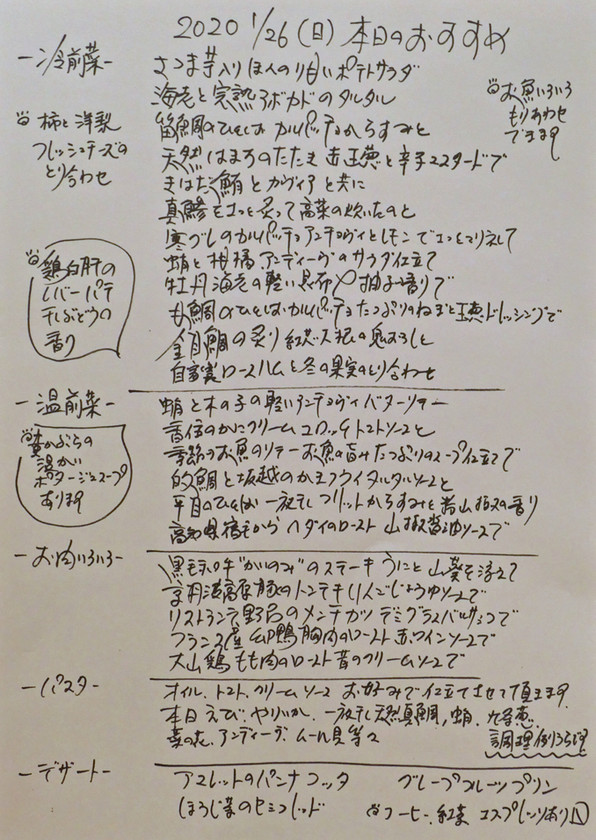 2020 1/26 (日) 本日のおすすめ
-冷前菜-
さつま芋入り ほんのり甘い ポテトサラダ
海老と完熟アボカドのタルタル
笛鯛のひとしお カルパッチョ からすみと
天然はまちのたたき 赤玉葱と辛子マスタードで
きはだ鮪とカヴィアと共に
真鯵をさっと炙って高菜の炊いたのと
寒ブリのカルパッチョ アンチョヴィとレモンでさっとマリネして
蛸と柑橘、アンディーヴのサラダ仕立て
牡丹海老の軽い昆布〆 柚子香りで
鯛のひとしおカルパッチョ たっぷりのねぎと玉葱ドレッシングで
金目鯛の炙り 紅芯大根の鬼おろしと
自家製ロースハムと冬の果実のとり合わせ
お魚いろいろ
もりあわせ
できます
柿と洋梨
フレッシュチーズの
とり合わせ
鶏白肝の
レバーパテ
干しぶどうの
香り
-温前菜-
蛸と木の子の軽いアンチョヴィバターソテー
香住のかにクリームコロッケ トマトソースと
季節のお魚のソテー お魚の旨みたっぷりのスープ仕立てで
的鯛と坂越のかき フライ タルタルソースと
平目のひとしお 一夜干し フリット からすみと 山椒の香り
高知県宿毛から ハダイのロースト 山椒醤油ソースで
黄かぶらの
温かい
ポタージュスープ
あります
-お肉いろいろ-
黒毛和牛"かいのみ"のステーキ うにと山葵を添えて
京丹波高原豚のトンテキ りんごじょうゆソースで
リストランテ野呂のメンチカツ デミグラスバルサミコで
フランス産 鴨胸肉のロースト 赤ワインソースで
大山鶏もも肉のロースト 昔のクリームソースで
-パスタ-
オイル、トマト、クリームソース お好みで仕立てさせて頂きます
本日 えび、やりいか、一夜干し天然真鯛、蛸、九条葱、
菜の花、アンディーヴ、ムール貝等々
調理例うらです
-デザート-
アマレットのパンナコッタ
グレープフルーツプリン
ほうじ茶のセミフレッド
コーヒー、紅茶 エスプレッソあります